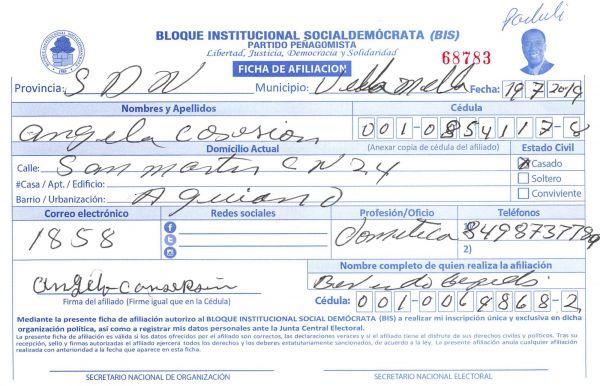 Paduli
BLOQUE INSTITUCIONAL SOCIALDEMÓCRATA (BIS)
PARTIDO PEÑAGOMISTA
Libertad, Justicia, Democracia y Solidaridad
68783
FICHA DE AFILIACION
Provincia: S D N Municipio: Villa Mella Fecha: 19/7/2019
Nombres y Apellidos Cédula
Angela 001-0854117-8
Domicilio Actual (Anexar copia de cédula del afiliado) Estado Civil
Calle: San martin C N 24 X Casado
#Casa / Apt. / Edificio: Soltero
Barrio / Urbanización: Conviviente
Correo electrónico Redes sociales Profesión/Oficio Teléfonos
1858 1)
2)
Nombre completo de quien realiza la afiliación
Angela
Firma del afiliado (Firme igual que en la Cédula) Cédula: 001-0069868-2
Mediante la presente ficha de afiliación autorizo al BLOQUE INSTITUCIONAL SOCIAL DEMÓCRATA (BIS) a realizar mi inscripción única y exclusiva en dicha
organización política, así como a registrar mis datos personales ante la Junta Central Electoral.
La presente ficha de afiliación es válida si los datos ofrecidos por el afiliado son correctos, las declaraciones veraces y si el afiliado tiene el disfrute de sus derechos civiles y políticos. Tras su
recepción, sello y firmas autorizadas el afiliado ejercerá todos los derechos y los deberes estatutariamente sancionados, de acuerdo a la ley. La presente afiliación anula cualquier afiliación
realizada con anterioridad a la fecha que aparece en esta ficha.
SECRETARIO NACIONAL DE ORGANIZACIÓN SECRETARIO NACIONAL ELECTORAL